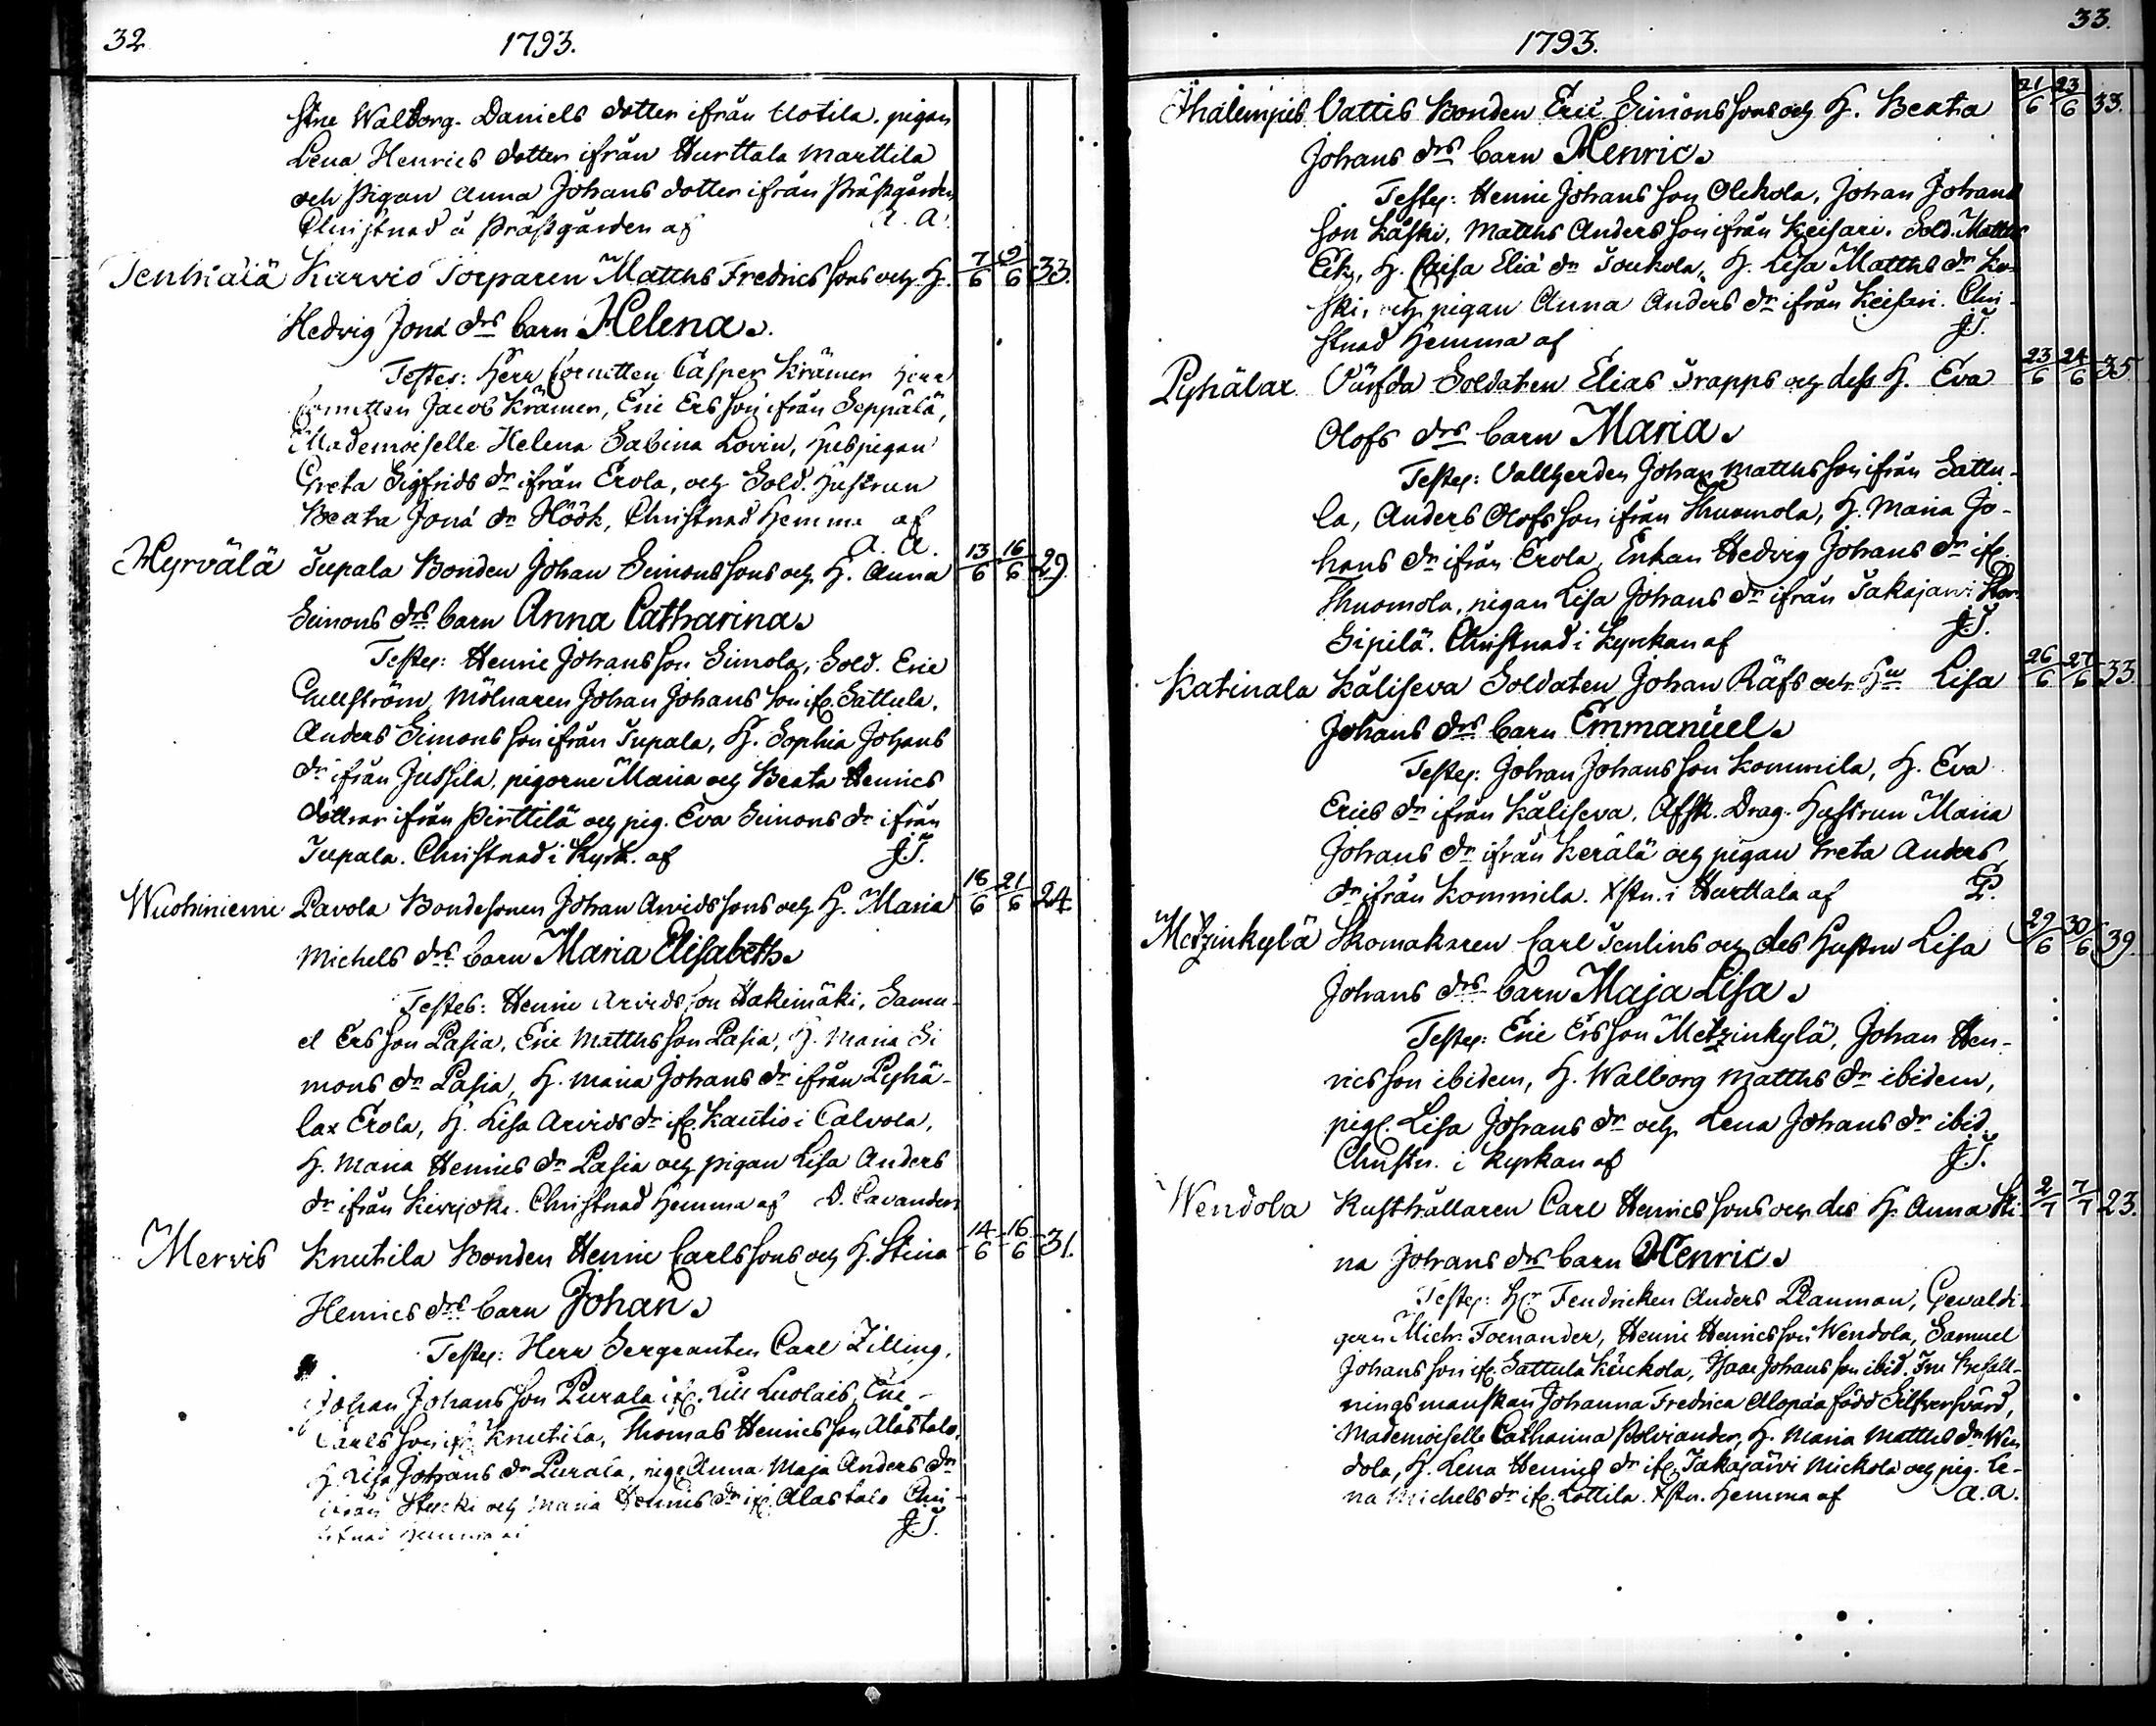 32
1793.
stne Walborg Daniels dotter ifrån Uotila. pigan
Lena Henrics dotter ifrån Hurttala Marttila
och Pigan Anna Johans dotter ifrån Präßgården
Christnad å Präßgården af A. A.
Tenhiälä Karvio Torparen Matths Fredrics sons och H. 7/6 9/6 33.
Hedvig Jonæ drs barn Helena.
Testes: Herr Cornetten Casper Krämer Herr
Cornetten Jacob Krämer, Eric Ers son ifrån Seppälä,
Mademoiselle Helena Sabina Lovin, Huspigan
Greta Sigfrids dr ifrån Erola, och Sold. Hustrun
Beata Jonæ dr Höök, Christnad hemma af
A. A.
Myrvälä Tupala Bonden Johan Simons sons och H. Anna 13/6 16/6 29.
Simons drs barn Anna Catharina.
Testes: Henric Johans son Simola, Sold. Eric
Gullström, Mölnaren Johan Johans son if. Sattula,
Anders Simons son ifrån Tupala, H. Sophia Johans
dr ifrån Jussila, pigorne Maria och Beata Henrics
döttrar ifrån Pirttilä och pig. Eva Simons dr ifrån
Tupala. Christnad i Kyrk. af J.T.
Wuohiniemi Pavola Bondesonen Johan Arvids sons och H. Maria 18/6 21/6 24.
Michels drs barn Maria Elisabeth.
Testes: Henric Arvids son Hakimäki, Samu-
el Ers son Pasia, Eric Matths son Pasia, H. Maria Si
mons dr Pasia, H. Maria Johans dr ifrån Pyhä-
lax Erola, H. Lisa Arvids dr if. Kautio i Calvola,
H. Maria Henrics dr Pasia och pigan Lisa Anders
dr ifrån Kirrjoki. Christnad hemma af D. Cavander
Mervis Knutila Bonden Henric Carls sons och H. Stina 14/6 16/6 31.
Henrics drs barn Johan.
Testes: Herr Sergeanten Carl Zilling,
Johan Johans son Purala if. Luolais, Eric
Carls son if. Knutila, Thomas Henrics son Alastalo,
H. Lisa Johans dr Purala, pig. Anna Maja Anders dr
ifrån och Maria Henrics dr if. Alastalo Chri-
stnad hemma af J.T.
33.
1793.
Ihalempis Vattis Bonden Eric Simons sons och H. Beata 21/6 23/6 33.
Johans drs barn Henric.
Testes: Henric Johans son Olckola, Johan Johans
son Kaski, Matths Anders son ifrån Keisari. Sold. Matths
Eek, H. Caisa Eliæ dr Toukola, H. Lisa Matths dr Ka-
ski, och pigan Anna Anders dr ifrån Keisari. Chri-
stnad hemma af J.T.
Pyhälax Värfda Soldaten Elias Trapps och dess H. Eva 23/6 24/6 35.
Olofs drs barn Maria.
Testes: Vallherden Johan Matths son ifrån Sattu-
la, Anders Olofs son ifrån Thuomola, H. Maria Jo-
hans dr ifrån Erola, Enkan Hedvig Johans dr if.
Thuomola, pigan Lisa Johans dr ifrån Takajärvi
Sipilä. Christnad i Kyrkan af J.T.
Katinala Käliseva Soldaten Johan Räfs och Hu Lisa 26/6 27/6 33
Johans drs barn Emmanuel.
Testes: Johan Johans son Kommila, H. Eva
Erics dr ifrån Käliseva, Afsk. Drag. Hustrun Maria
Johans dr ifrån Kerälä och pigan Greta Anders
dr ifrån Kommila. Xstn. i Hurttala af
Metzinkylä Skomakaren Carl Tenlins och des Hustru Lisa 29/6 30/6 39.
Johans drs barn Maja Lisa.
Testes: Eric Ers son Metzinkylä, Johan Hen-
rics son ibidem, H. Walborg Matths dr ibidem,
pig. Lisa Johans dr och Lena Johans dr ibid.
Christn. i Kyrkan af J.T.
Wendola Rusthållaren Carl Henrics sons och des H. Anna Sti- 2/7 7/7 23.
na Johans drs barn Henric.
Testes: Hr Fendricken Anders Plauman, Gevaldi-
gern Mich. Fornander, Henric Henrics son Wendola, Samuel
Johans son if. Sattula Kuckola, Isaac Johans son ibid. Fru Befall-
ningsmanskan Johanna Fredrica Alopæa född Silfversvärd,
Mademoiselle Catharina Polviander, H. Maria Matths dr Wen
dola, H. Lena Henrics dr if. Takajärvi Mickola och pig. Le-
na Michels dr if. Lottila. Xstn. hemma af A. A.